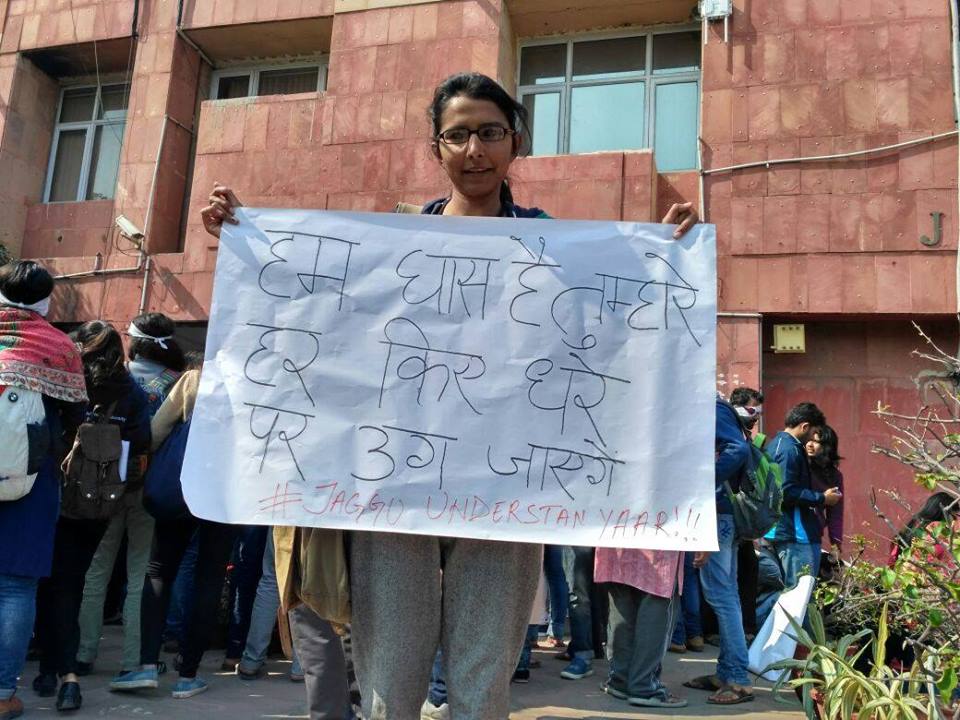 हम घास है तुम्हारे
हर किए धरे
पर उग जाएंगे
# JAGGU UNDERSTAN YAAR!!!
J